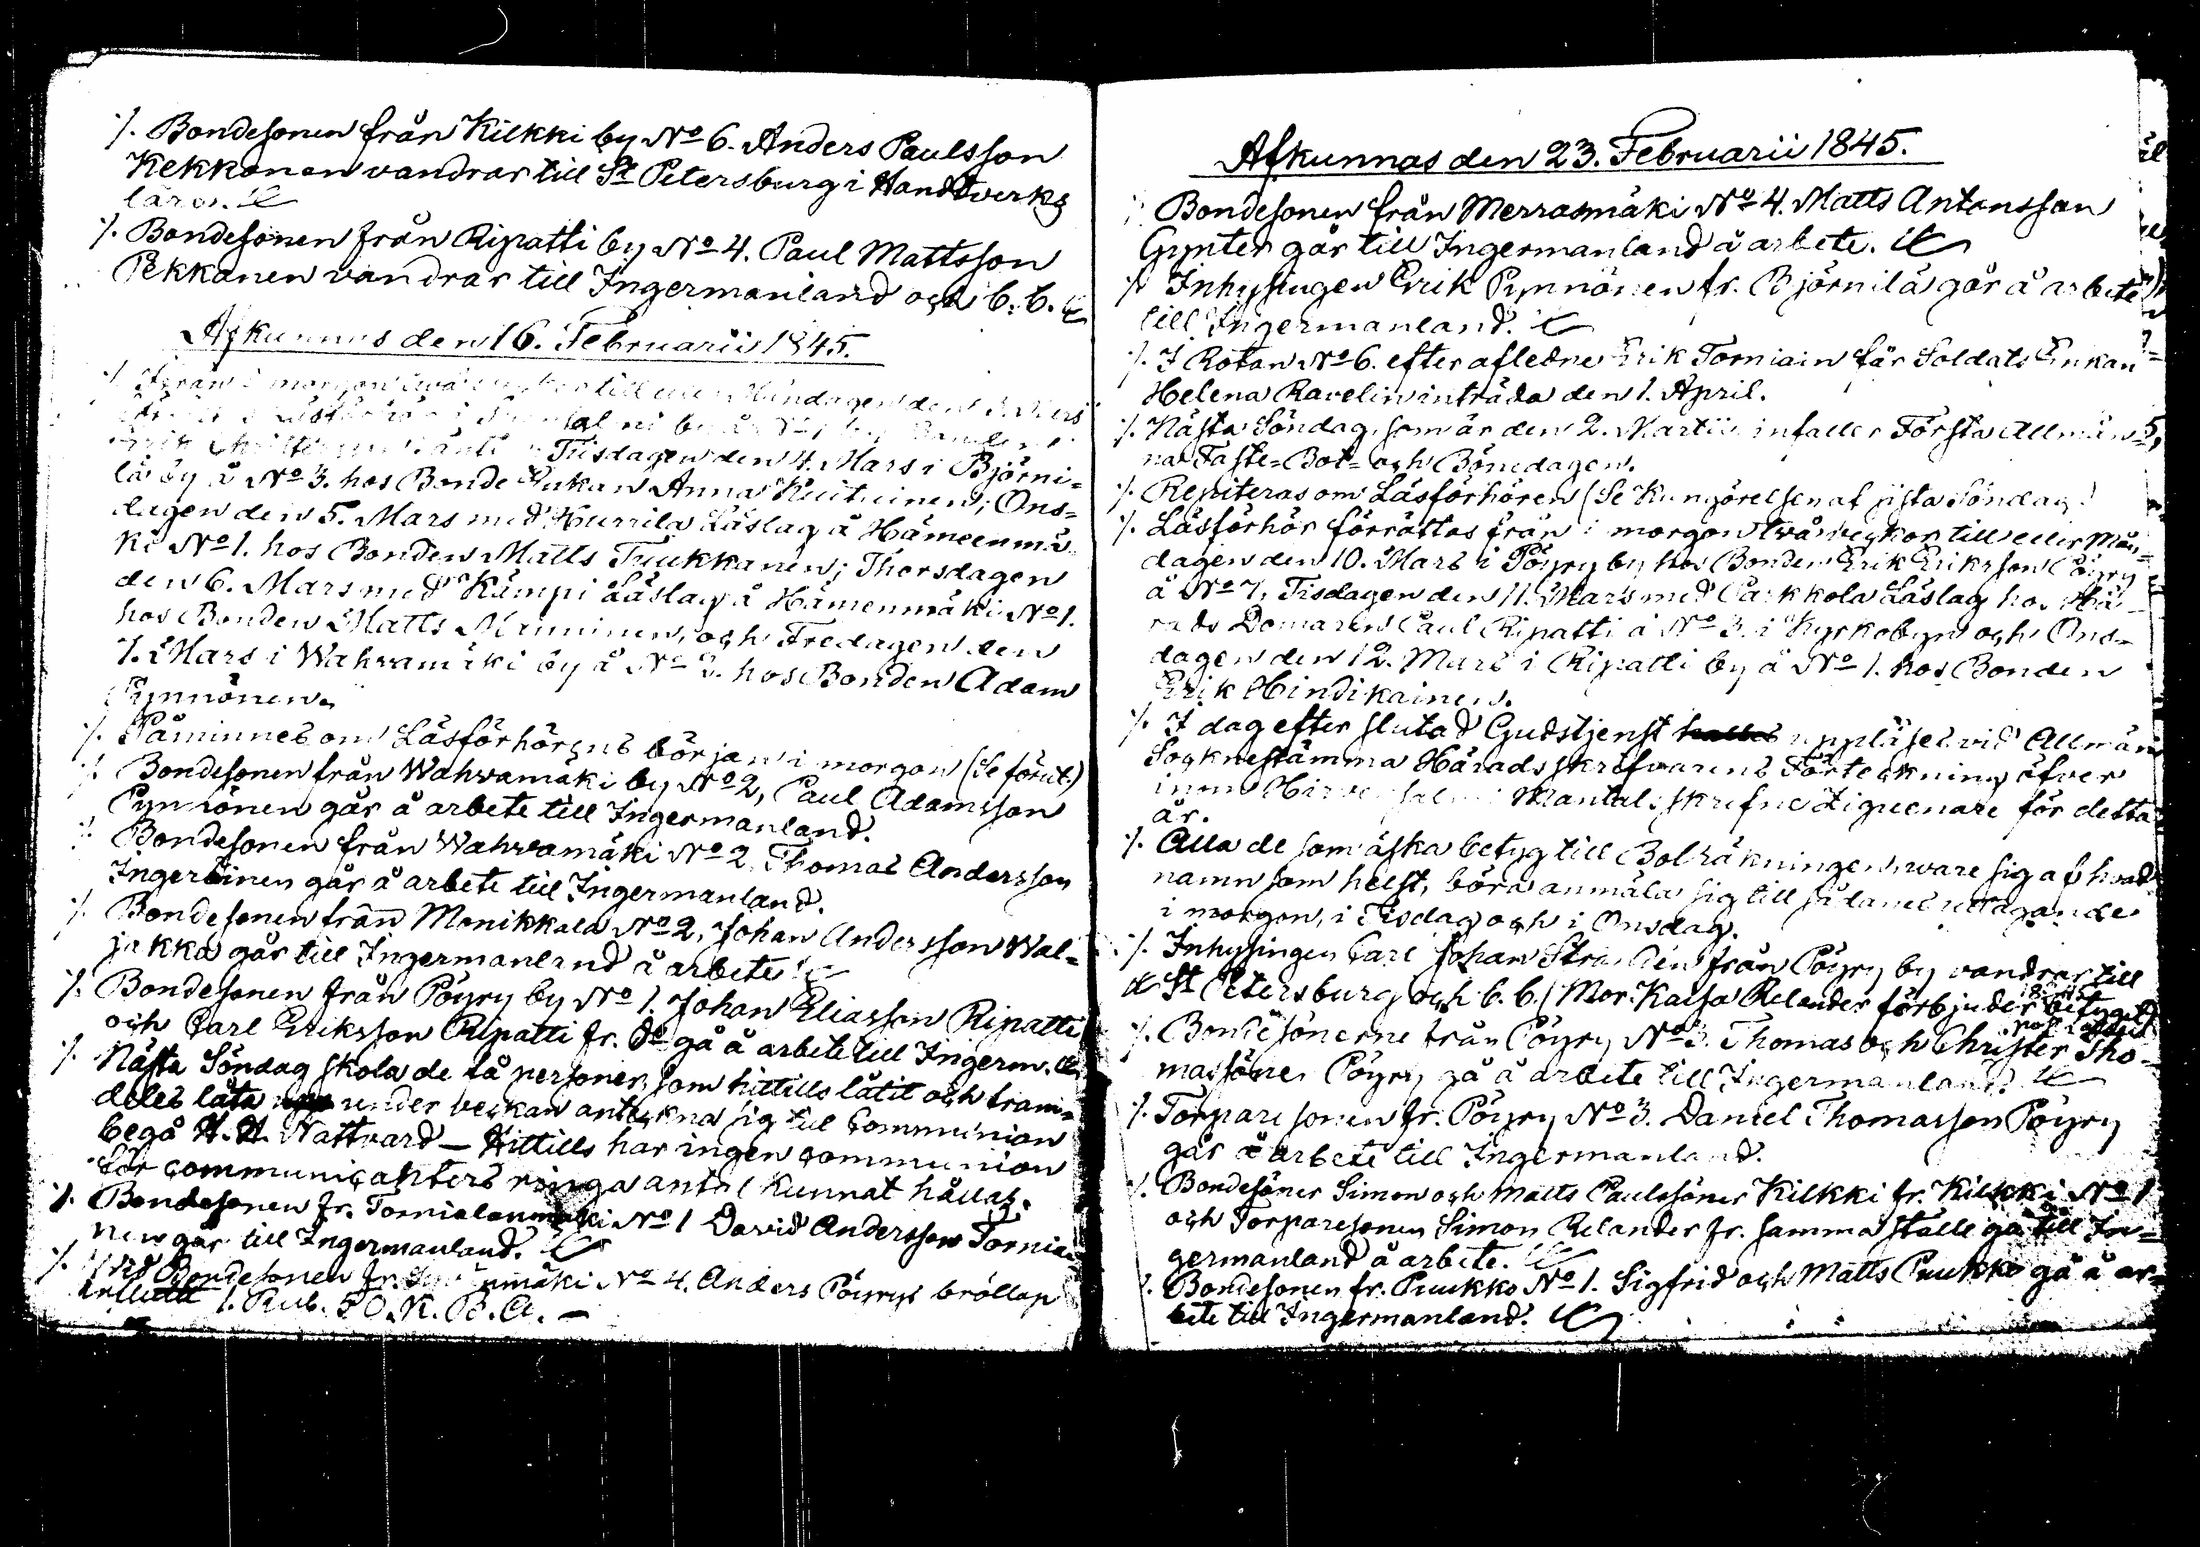 ./. Bondesonen från Kilkki by No 6. Anders Paulsson
Kekkonen vandrar till St Petersburg i Handtverks
lära.
./. Bondesonen från Ripatti by No 4. Paul Mattsson
Pekkanen vandrar till Ingermanland och b. b.
Afkunnas den 16. Februarii 1845.
./. Ifrån i morgon två veckor till eller Måndagen den 3. Mars
Erik Tisdagen den 4. Mars i Björni-
lä by å No 3. hos Bonde Enkan Anna Kuituinen; Ons-
dagen den 5. Mars med Hurrila Läslag å Hämeenmä-
ki No 1. hos Bonden Matts Tuukkanen; Thorsdagen
den 6. Mars med Kämpi Läslag å Hämenmäki No 1.
hos Bonden Matts Manninen, och Fredagen den
7. Mars i Wahvamäki by å No 2. hos Bonden Adam
Pynnönen.
./. Påminnes om Läsförhörens början i morgon (Se förut.)
./. Bondesonen från Wahvamäki by No 2, Paul Adamsson
Pynnönen går å arbete till Ingermanland.
./. Bondesonen från Wahvamäki No 2. Thomas Andersson
Ingeröinen går å arbete till Ingermanland.
./. Bondesonen från Monikkala No 2, Johan Andersson Wal-
jakka går till Ingermanland å arbete
./. Bondesonen från Pöyry by No 1. Johan Eliasson Ripatti
och Carl Eriksson Ripatti fr. do gå å arbete till Ingerm.
./. Nästa Söndag skola de få personer, som hittills låtit och fram-
deles låta under veckan anteckna sig till Communion
begå H. H. Nattvard – Hittills har ingen communion
för communicanters ringa antal kunnat hållas.
./. Bondesonen fr. Tornialanmäki No 1 David Andersson Tornia-
nen går till Ingermanland.
./. Vid Bondesonen fr. mäki No 4. Anders Pöyrys bröllop
1. Rub. 50. K. B. A. –
Afkunnas den 23. Februarii 1845.
./. Bondesonen från Merrasmäki No 4. Matts Antonsson
Gynter går till Ingermanland å arbete.
./. Inhysingen Erik Pynnönen fr. Björnilä går å arbete
till Ingermanland.
./. I Rotan No 6. efter afledne Erik Torniain får Soldats Enkan
Helena Ravelin inträda den 1. April.
./. Nästa Söndag, som är den 2. Martii infaller Första Allmän-
na Faste- Bot- och Bönedagen.
./. Repiteras om Läsförhören (Se Kungörelsen af sista Söndag)
./. Läsförhör förrättas från i morgon två veckor till eller Mån-
dagen den 10. Mars i Pöyry by hos Bonden Erik Eriksson Pöyry
å No 7, Tisdagen den 11. Mars med Parkkola Läslag hos Hä-
rads Domaren Paul Ripatti å No 3. i Kyrkobyn och Ons-
dagen den 12. Mars i Ripatti by å No 1. hos Bonden
Erik Hindikainen.
./. I dag efter slutad Gudstjenst uppläses vid Allmän
Socknestämma Häradsskrifvarens Förteckning öfver
inom Hirvensalmi Mantalsskrefne Ziguenare för detta
år.
./. Alla de som äska betyg till Bolräkningen, vare sig af hvad
namn som helst, böra anmäla sig till sådanes
i morgon, i Tisdag och i Onsdag.
./. Inhysingen Carl Johan Strandén från Pöyry by vandrar till
St Petersburg och b. b. / Mor. Kaisa Relander förbjuder betyget
./. Bondesönerne från Pöyry No 3. Thomas och Christer Tho-
massöner Pöyry gå å arbete till Ingermanland.
./. Torparesonen fr. Pöyry No 3. Daniel Thomasson Pöyry
går å arbete till Ingermanland.
./. Bondesöner Simon och Matts Paulssöner Kilkki fr. Kilkki No 1
och Torparesonen Simon Relander fr. samma ställe gå till In-
germanland å arbete.
./. Bondesonen fr. Puukko No 1. Sigfrid och Matts Puukko gå å ar-
bete till Ingermanland.